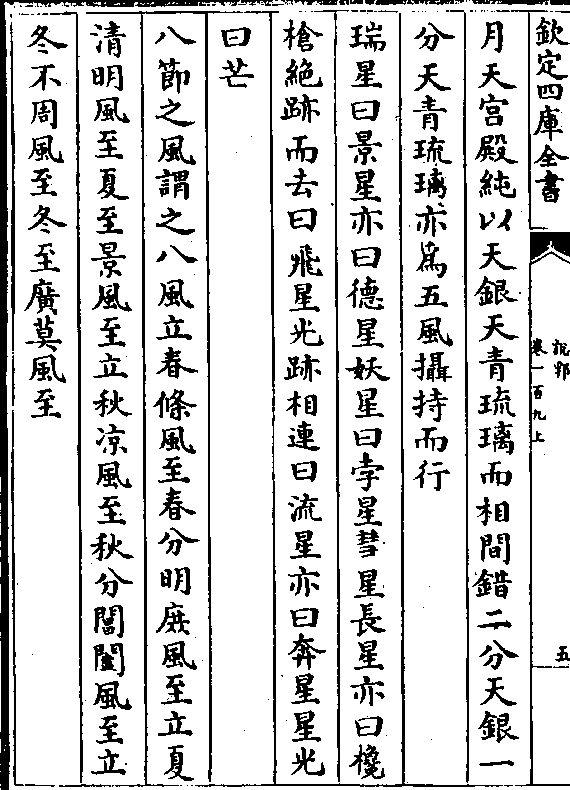 欽定四庫全書
說郛
卷一百九上
五
月天宫殿純以天銀天青琉璃而相間錯二分天銀一
分天青琉璃亦為五風攝持而行
瑞星曰景星亦曰德星妖星曰孛星彗星長星亦曰欃
槍絶跡而去曰飛星光跡相連曰流星亦曰奔星星光
曰芒
八節之風謂之八風立春條風至春分明庶風至立夏
清明風至夏至景風至立秋凉風至秋分閶闔風至立
冬不周風至冬至廣莫風至